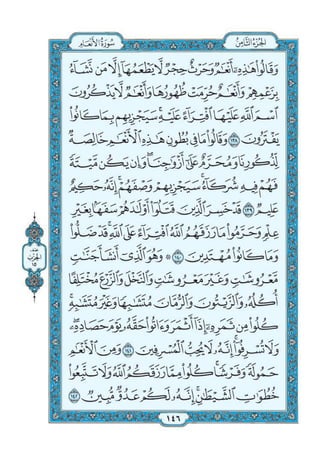 الجزء الثامن
سورة الأنعام
وَقَالُوا۟ هَـٰذِهِۦٓ أَنْعَـٰمٌ وَحَرْثٌ حِجْرٌ لَّا يَطْعَمُهَآ إِلَّا مَن نَّشَآءُ
بِزَعْمِهِمْ وَأَنْعَـٰمٌ حُرِّمَتْ ظُهُورُهَا وَأَنْعَـٰمٌ لَّا يَذْكُرُونَ
ٱسْمَ ٱللَّهِ عَلَيْهَا ٱفْتِرَآءً عَلَيْهِ ۚ سَيَجْزِيهِم بِمَا كَانُوا۟
يَفْتَرُونَ ١٣٨ وَقَالُوا۟ مَا فِى بُطُونِ هَـٰذِهِ ٱلْأَنْعَـٰمِ خَالِصَةٌ
لِّذُكُورِنَا وَمُحَرَّمٌ عَلَىٰٓ أَزْوَٰجِنَا ۖ وَإِن يَكُن مَّيْتَةً
فَهُمْ فِيهِ شُرَكَآءُ ۚ سَيَجْزِيهِمْ وَصْفَهُمْ ۚ إِنَّهُۥ حَكِيمٌ
عَلِيمٌ ١٣٩ قَدْ خَسِرَ ٱلَّذِينَ قَتَلُوٓا۟ أَوْلَـٰدَهُمْ سَفَهًۢا بِغَيْرِ
عِلْمٍ وَحَرَّمُوا۟ مَا رَزَقَهُمُ ٱللَّهُ ٱفْتِرَآءً عَلَى ٱللَّهِ ۚ قَدْ ضَلُّوا۟
وَمَا كَانُوا۟ مُهْتَدِينَ ١٤٠ ۞ وَهُوَ ٱلَّذِىٓ أَنشَأَ جَنَّـٰتٍ
مَّعْرُوشَـٰتٍ وَغَيْرَ مَعْرُوشَـٰتٍ وَٱلنَّخْلَ وَٱلزَّرْعَ مُخْتَلِفًا
أُكُلُهُۥ وَٱلزَّيْتُونَ وَٱلرُّمَّانَ مُتَشَـٰبِهًا وَغَيْرَ مُتَشَـٰبِهٍ ۚ
كُلُوا۟ مِن ثَمَرِهِۦٓ إِذَآ أَثْمَرَ وَءَاتُوا۟ حَقَّهُۥ يَوْمَ حَصَادِهِۦ ۖ
وَلَا تُسْرِفُوٓا۟ ۚ إِنَّهُۥ لَا يُحِبُّ ٱلْمُسْرِفِينَ ١٤١ وَمِنَ ٱلْأَنْعَـٰمِ
حَمُولَةً وَفَرْشًا ۚ كُلُوا۟ مِمَّا رَزَقَكُمُ ٱللَّهُ وَلَا تَتَّبِعُوا۟
خُطُوَٰتِ ٱلشَّيْطَـٰنِ ۚ إِنَّهُۥ لَكُمْ عَدُوٌّ مُّبِينٌ ١٤٢
١٤٦